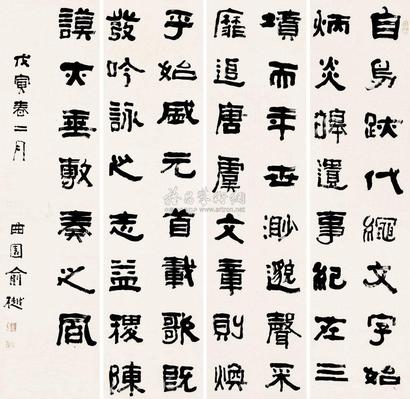 自鳥跡代繩文字始
炳炎皞遺事紀在三
墳而年世渺邈聲采
靡追唐虞文章則煥
乎始盛元首載歌既
發吟詠之志益稷陳
謨亦垂敷奏之風
戊寅春二月 曲園俞樾
雅昌艺术网
www.artron.net